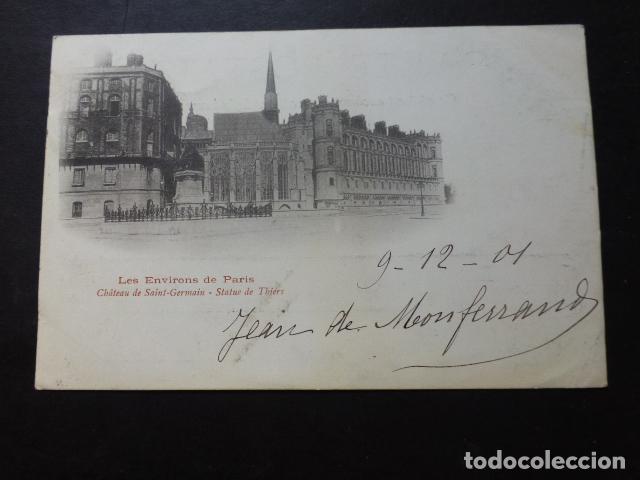 Les Environs de Paris
Château de Saint-Germain - Statue de Thiers
9-12-01
Jean de Monferrand
todocoleccion.net